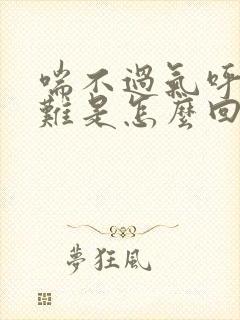 喘不過氣呼
難是怎麼回
夢狂風